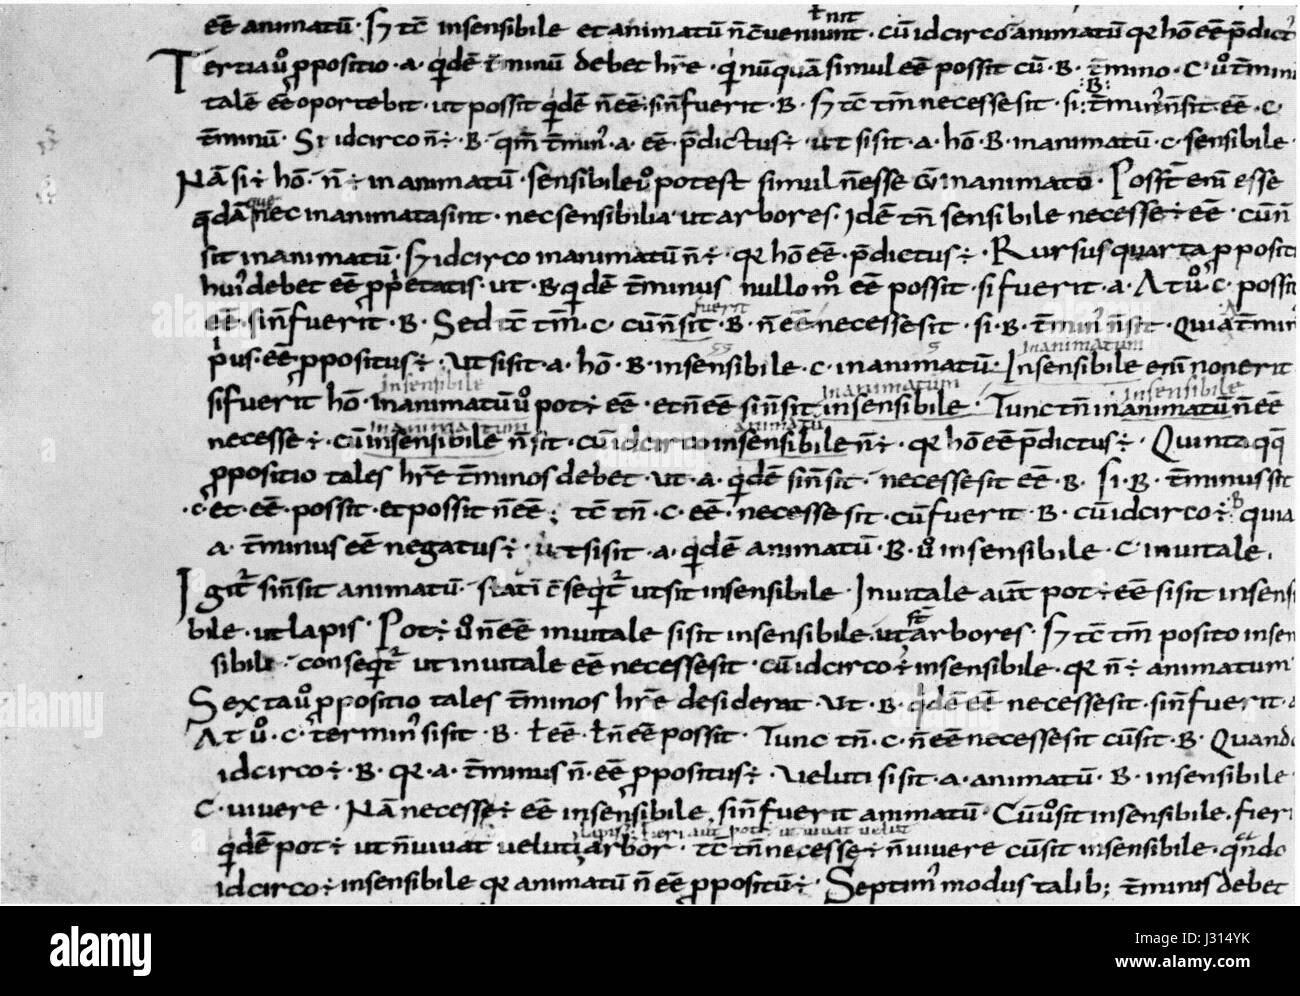 eē animatū · Sȝ tc̄ insensibile et animatū n̄ c̄veniunt · cū idcirco animatū qr hō eē p̄dict
Tertia ū ꝓpositio · a · qdē t̄minū debet hr̄e · q nūquā simul eē possit cū · B · t̄mino · C · ū t̄min
talē eē oportebit · ut possit qdē n̄ eē · si n̄ fuerit · B · Sȝ tc̄ tm̄ necesse sit · si · t̄min n̄ sit eē · c
t̄minū · Si idcirco n̄ ÷ · B · qm̄ t̄min · a · eē p̄dictus ÷ · ut si sit · a · hō · B · inanimatū · c · sensibile ·
Nā si ÷ hō · n̄ ÷ inanimatū · sensibile ū potest simul n̄ esse cū inanimato · Posst̄ enī esse
qdā que nec inanimata sint · nec sensibilia · ut arbores · Idē tn̄ sensibile necesse ÷ eē · cū n̄
sit inanimatū · Sȝ idcirco inanimatū n̄ ÷ · qr hō eē · p̄dictus ÷ · Rursus quarta ꝓposit
hui debet eē ꝓp̄etatis · ut · B · qdē t̄minus nullo m̊ eē possit · si fuerit · a · At ū · c · possit
eē · si n̄ fuerit · B · Sed tc̄ tm̄ · c · cū n̄ sit · B · n̄ eē necesse sit · si · B · t̄min n̄ sit · Quia t̄min
fuerit
p̄us · eē ꝓpositus ÷ · ut si sit · a · hō · B · insensibile · c · inanimatū · Insensibile enī non erit
inanimatum
si fuerit hō · inanimatū ū pot ÷ eē · et n̄ eē si n̄ sit insensibile · Tunc tn̄ inanimatū n̄ eē
insensibile inanimatum insensibile
necesse ÷ · cū insensibile n̄ sit · cū idcirco insensibile n̄ ÷ · qr hō eē p̄dictus ÷ · Quinta qq
inanimatum animatū
ꝓpositio tales hr̄e t̄minos debet · ut · a · qdē si n̄ sit · necesse sit eē · B · Si · B · t̄minus sit
· c · et · eē · possit · et possit n̄ eē ; tc̄ tn̄ · c · eē · necesse sit · cū fuerit · B · cū idcirco ÷ B quia
a · t̄minus eē negatus ÷ · ut si sit · a · qdē animatū · B · ū insensibile · c · in vitale ·
Igit̄ si n̄ sit animatū · statī c̄seqt̄ ut sit insensibile · In vitale aut̄ pot ÷ eē si sit insensi
bile · ut lapis · Pot ÷ ū n̄ eē in vitale si sit insensibile · ut arbores · Sȝ tc̄ tm̄ posito insen
sibili · conseqt̄ ut in vitale eē necesse sit · cū idcirco ÷ insensibile · qr n̄ ÷ animatum
Sexta ū ꝓpositio tales t̄minos hr̄e desiderat · ut · B · qdē eē necesse sit · si n̄ fuerit · a
At ū · c · termin si sit · B · t̄ eē · t̄ n̄ eē possit · Tunc tn̄ · c · n̄ eē necesse sit cū sit · B · Quando
idcirco ÷ · B · qr · a · t̄minus n̄ · eē ꝓpositus ÷ · veluti si sit · a · animatū · B · insensibile ·
C · vivere · Nā necesse ÷ eē insensibile, si n̄ fuerit animatū · Cū ū sit insensibile · fieri
lapis · fieri aut pot ut vivat velut
qdē pot ÷ ut n̄ vivat veluti arbor · tc̄ tn̄ necesse ÷ n̄ vivere cū sit insensibile · qndo
idcirco ÷ insensibile qr animatū n̄ eē ꝓpositū ÷ · Septim modus talib; t̄minis debet
alamy
J314YK
www.alamy.com